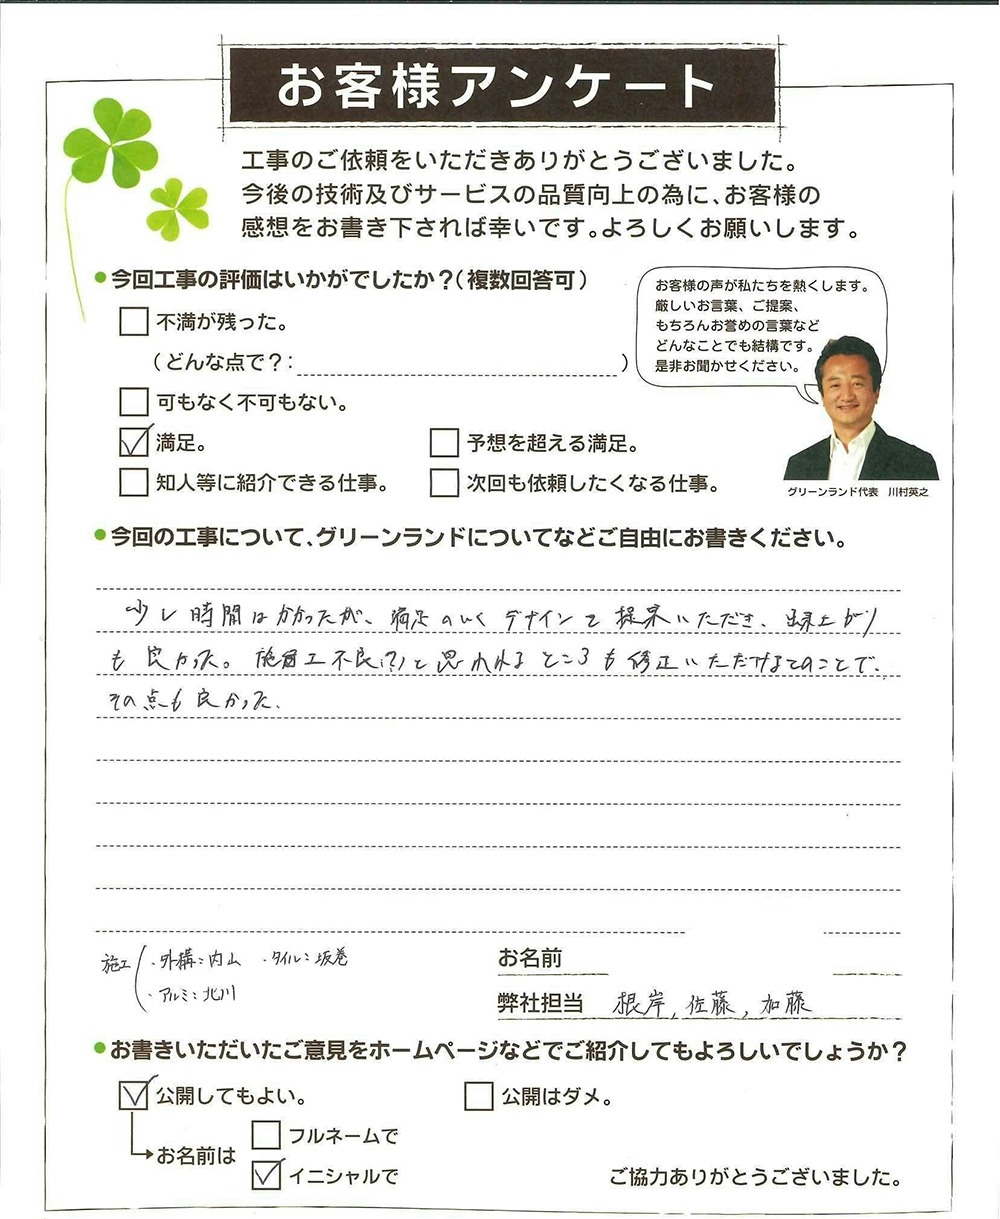 お客様アンケート
工事のご依頼をいただきありがとうございました。
今後の技術及びサービスの品質向上の為に、お客様の
感想をお書き下されば幸いです。よろしくお願いします。
●今回工事の評価はいかがでしたか？（複数回答可）
不満が残った。
（どんな点で？：　）
可もなく不可もない。
満足。
予想を超える満足。
知人等に紹介できる仕事。
次回も依頼したくなる仕事。
お客様の声が私たちを熱くします。
厳しいお言葉、ご提案、
もちろんお誉めの言葉など
どんなことでも結構です。
是非お聞かせください。
グリーンランド代表　川村英之
●今回の工事について、グリーンランドについてなどご自由にお書きください。
少し時間はかかったが、満足のいくデザインを提案いただき、出来上がり
も良かった。施工不良(?)と思われるところも修正いただけるとのことで、
その点も良かった。
施工 ・外構：内山 ・タイル：坂巻
・アルミ：北川
お名前
弊社担当 根岸, 佐藤, 加藤
●お書きいただいたご意見をホームページなどでご紹介してもよろしいでしょうか？
公開してもよい。
公開はダメ。
お名前は
フルネームで
イニシャルで
ご協力ありがとうございました。